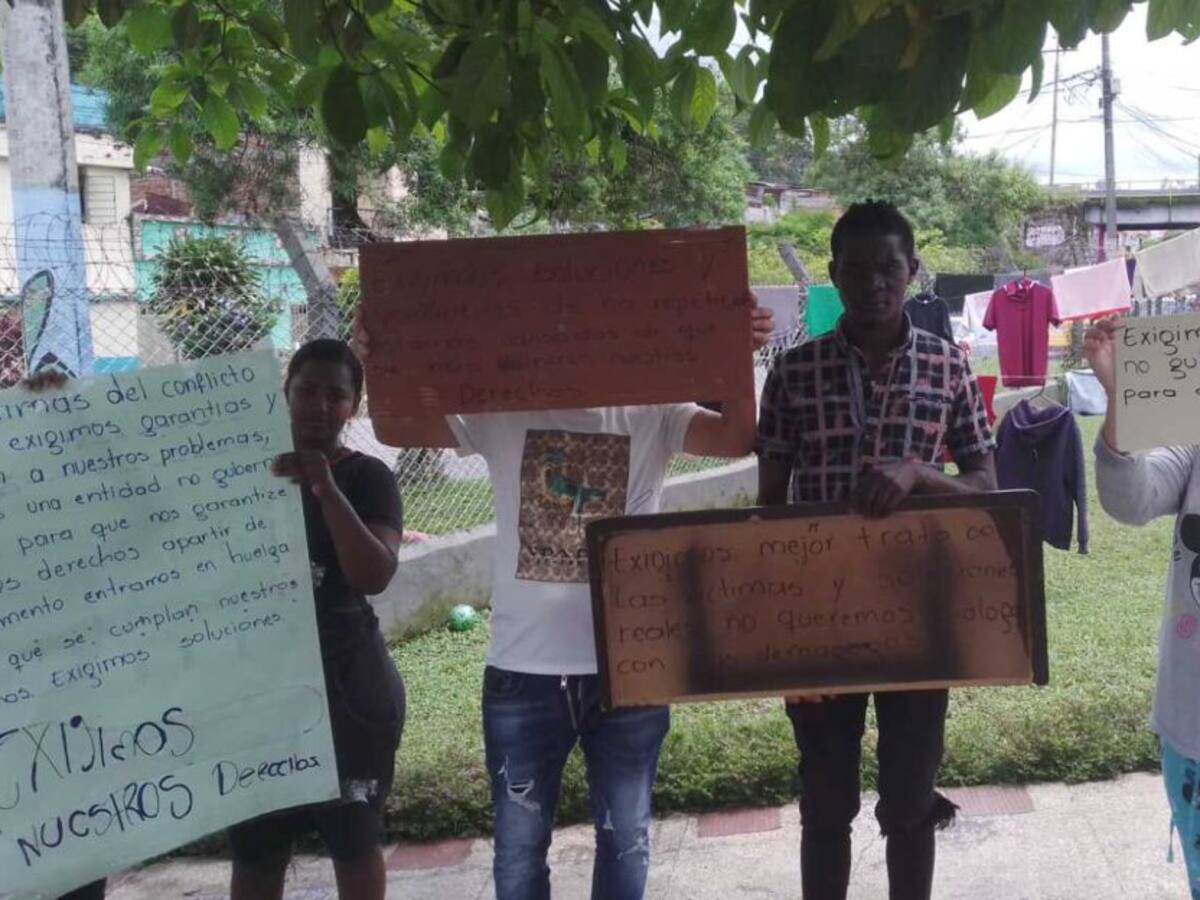 imas del conflicto
exigimos garantias y
a nuestros problemas,
una entidad no gubern
para que nos garantize
os derechos apartir de
mento entramos en huelga
qué se cumplan nuestros
os. Exigimos soluciones.
EXIJIMOS
NUESTROS Derechos
Exigimos soluciones y
de no repetición
cansados de que
nuestros
Derechos
Exigimos mejor trato co
Las víctimas y soluciones
reales no queremos
con
Exigim
no gu
para